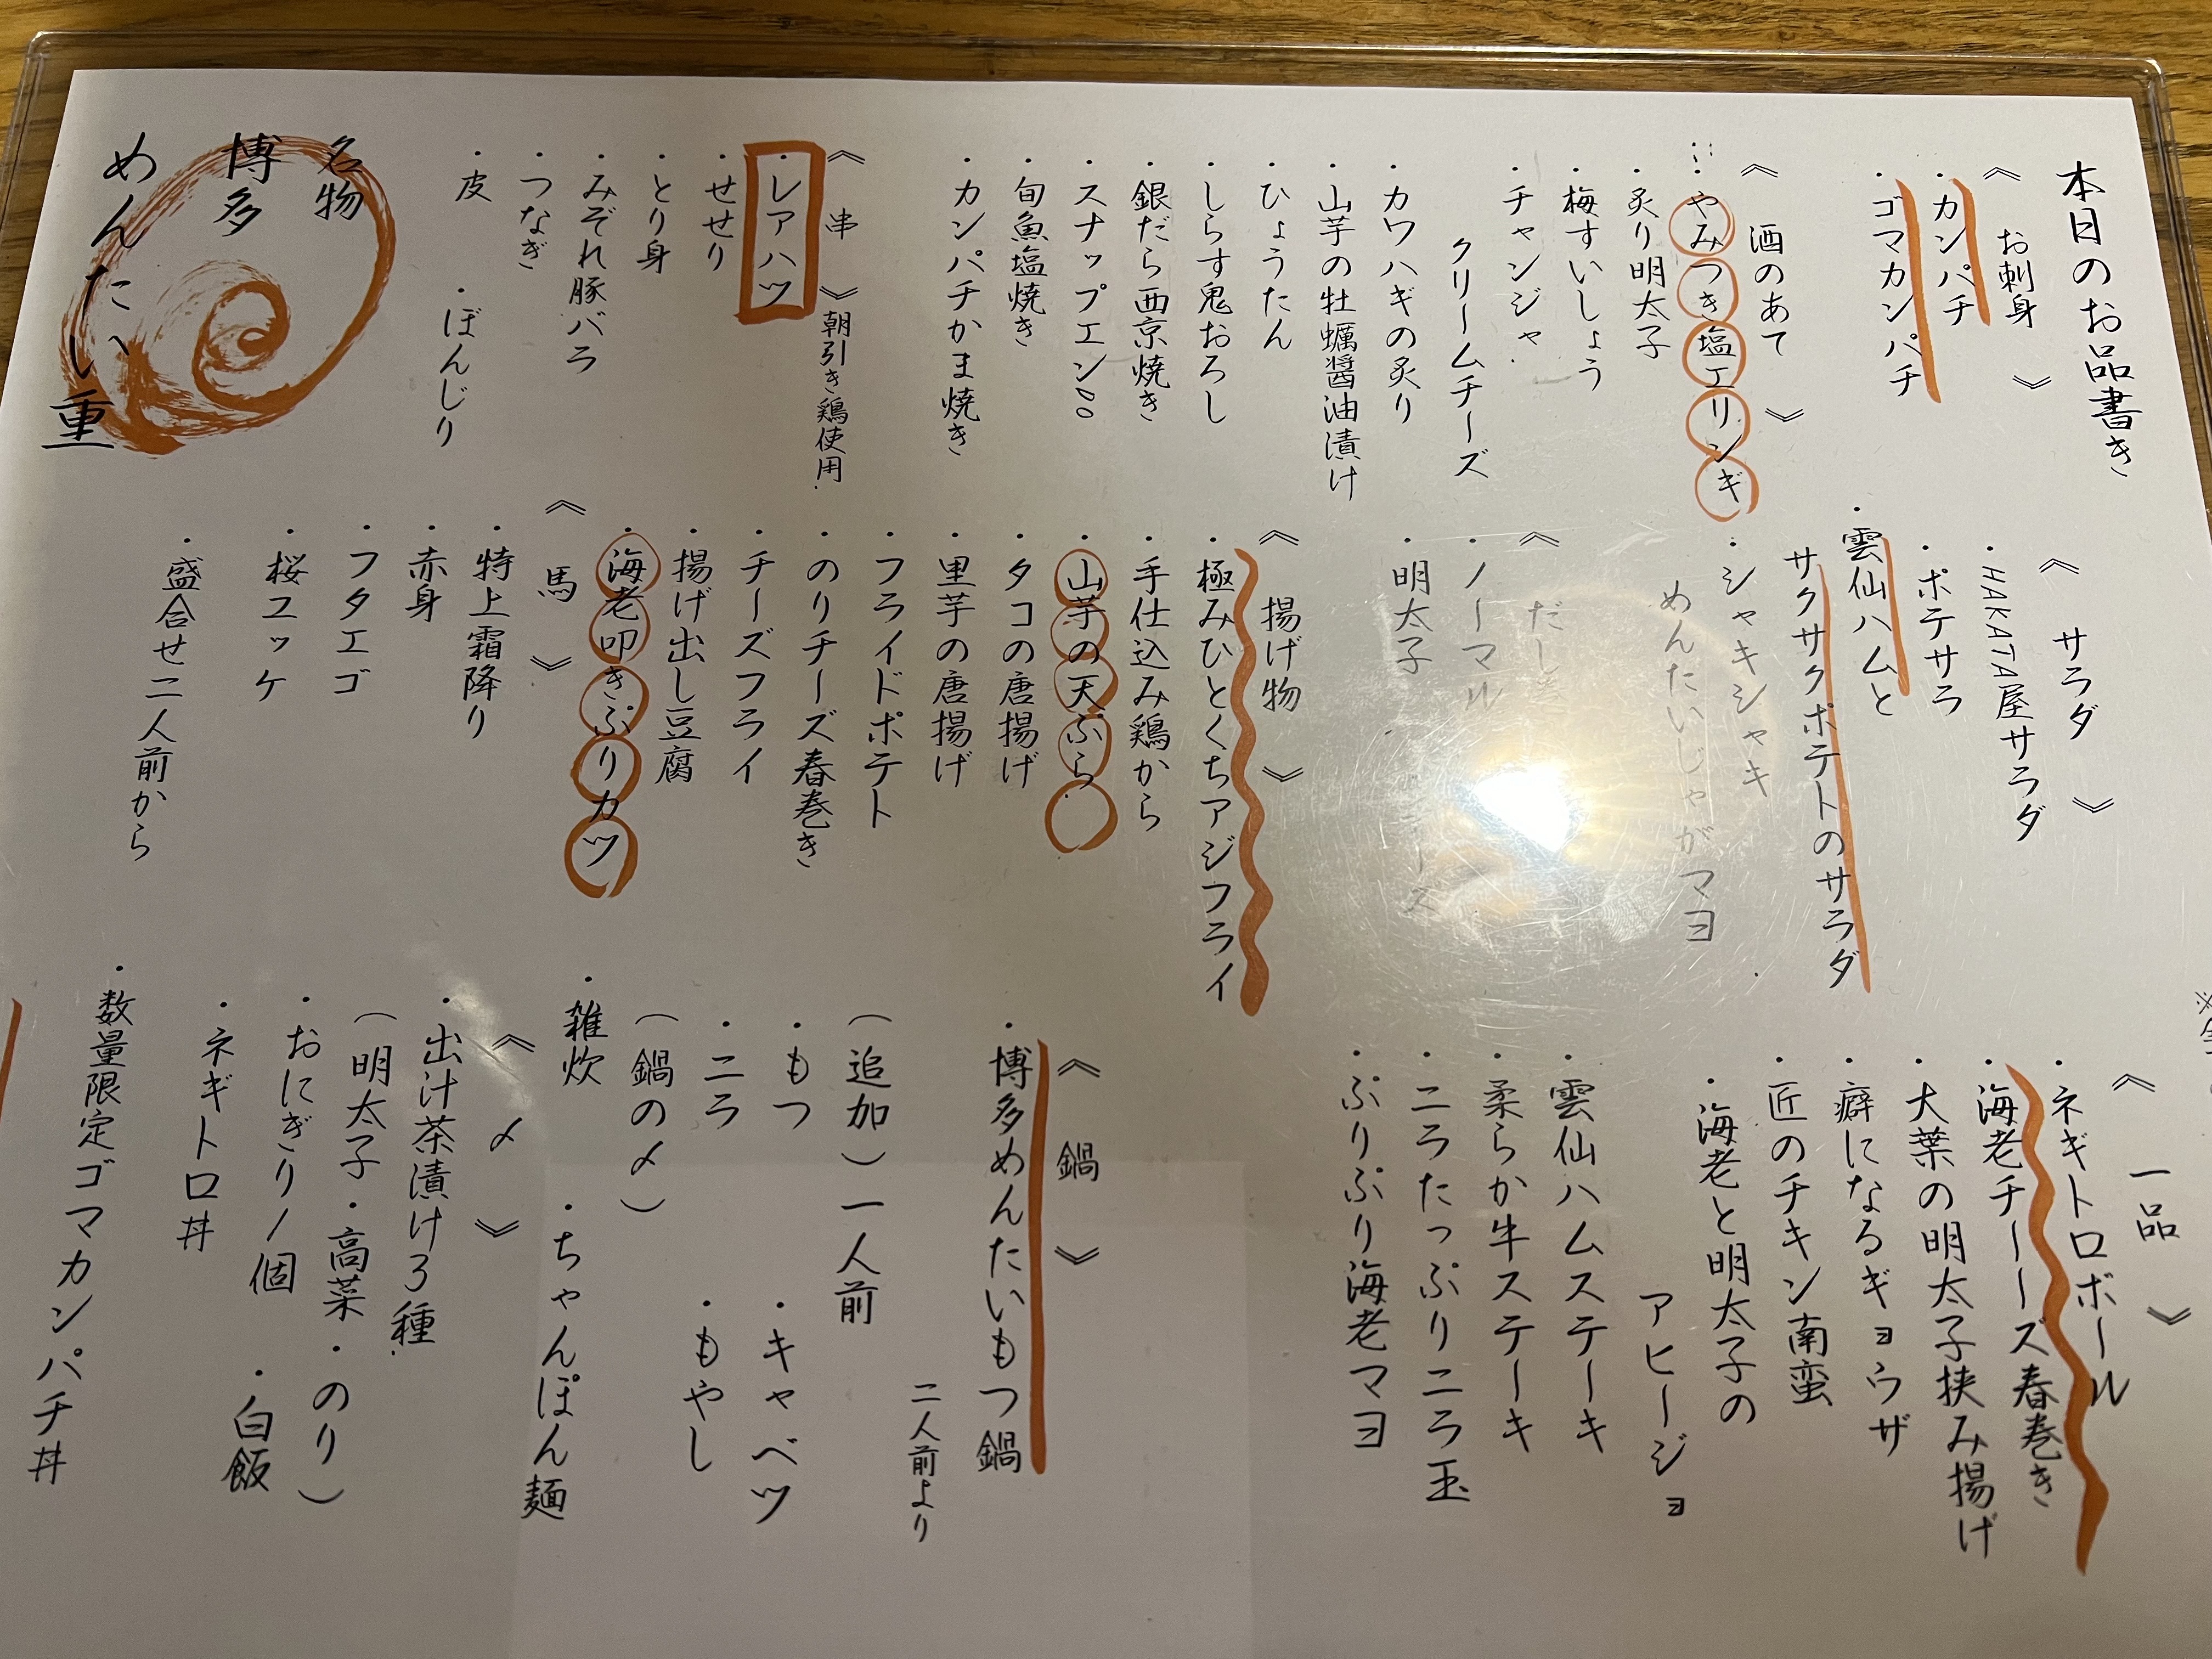 本日のお品書き
《お刺身》
・カンパチ
・ゴマカンパチ
《酒のあて》
・やみつき塩エリンギ
・炙り明太子
・梅すいしょう
・チャンジャ
クリームチーズ
・カワハギの炙り
・山芋の牡蠣醤油漬け
・ひょうたん
・しらす鬼おろし
・銀だら西京焼き
・スナップエンドウ
・旬魚塩焼き
・カンパチかま焼き
《串》朝引き鶏使用
・レアハツ
・せせり
・とり身
・みぞれ豚バラ
・つなぎ
・皮
・ぼんじり
名物
博多
めんたい重
《サラダ》
・HAKATA屋サラダ
・ポテサラ
・雲仙ハムと
サクサクポテトのサラダ
・シャキシャキ
めんたいじゃがマヨ
《だし
・ノーマル
・明太子
チーズ
《揚げ物》
・極みひとくちアジフライ
・手仕込み鶏から
・山芋の天ぷら
・タコの唐揚げ
・里芋の唐揚げ
・フライドポテト
・のりチーズ春巻き
・チーズフライ
・揚げ出し豆腐
・海老叩きぷりカツ
《馬》
・特上霜降り
・赤身
・フタエゴ
・桜ユッケ
・盛合せ二人前から
※全
《一品》
・ネギトロボール
・海老チーズ春巻き
・大葉の明太子挟み揚げ
・癖になるギョウザ
・匠のチキン南蛮
・海老と明太子の
アヒージョ
・雲仙ハムステーキ
・柔らか牛ステーキ
・ニラたっぷりニラ玉
・ぷりぷり海老マヨ
《鍋》
・博多めんたいもつ鍋
二人前より
(追加)一人前
・もつ ・キャベツ
・ニラ ・もやし
(鍋の〆)
・雑炊 ・ちゃんぽん麺
《〆》
・出汁茶漬け3種
(明太子・高菜・のり)
・おにぎり1個
・白飯
・ネギトロ丼
・数量限定ゴマカンパチ丼